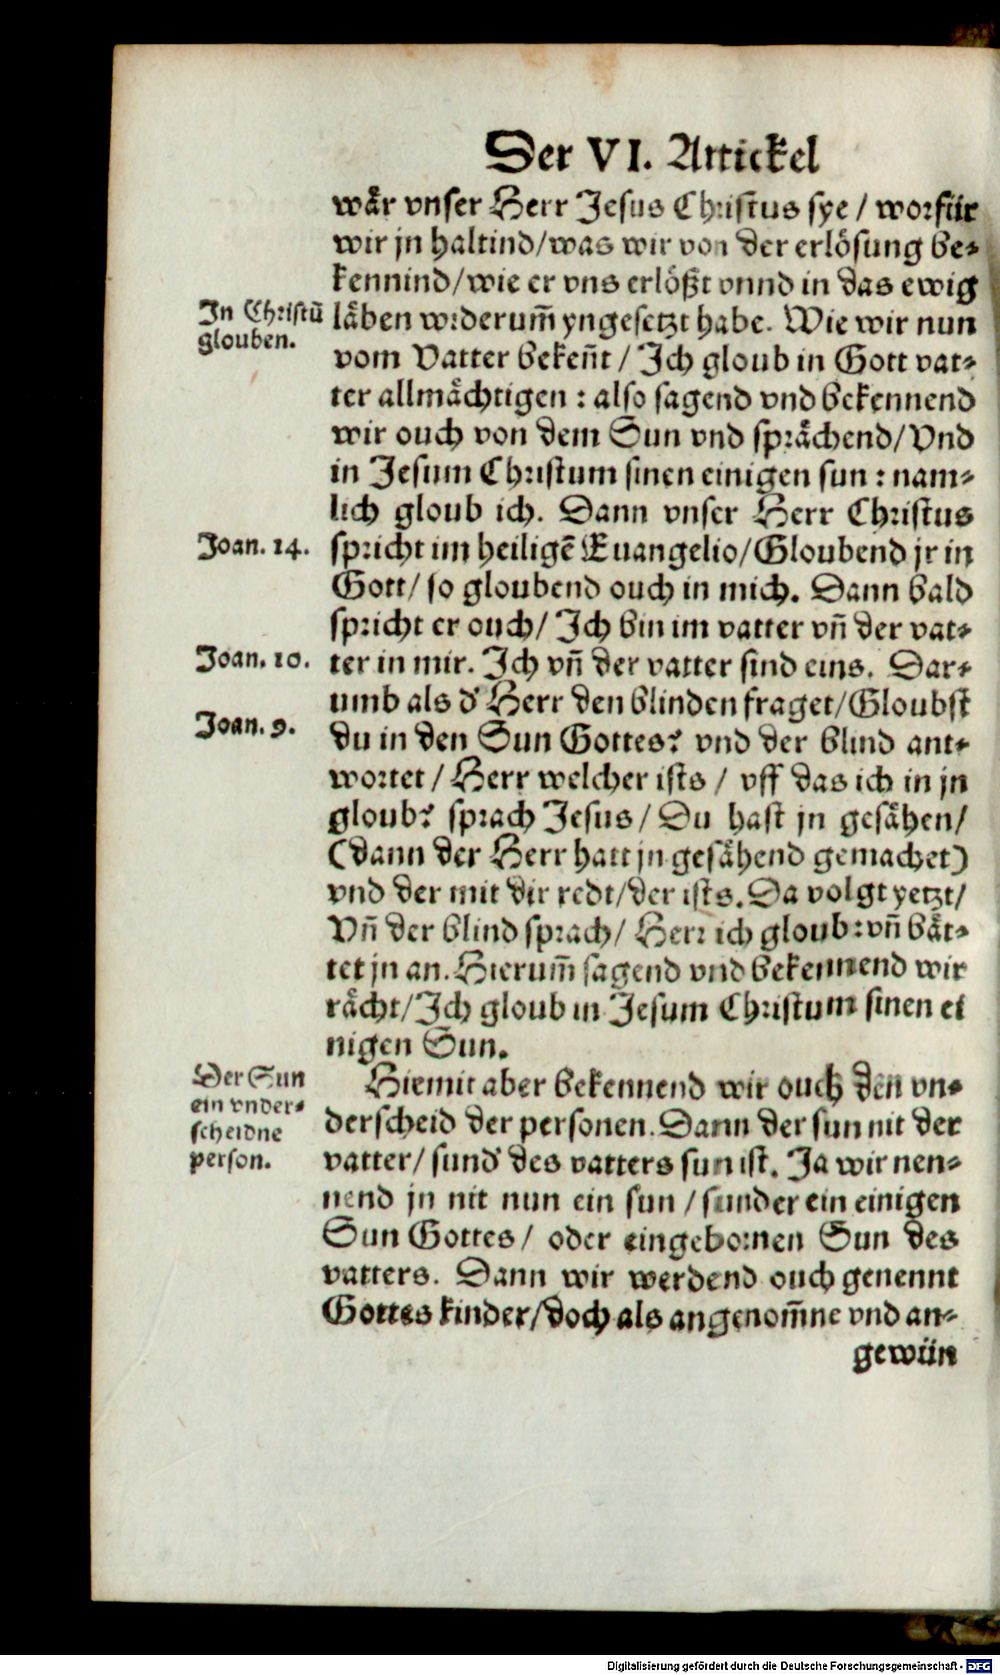 Der VI. Artickel
wår vnser Herr Jesus Christus sye / worfür
wir jn haltind/was wir von der erlösung be-
kennind/wie er vns erlößt vnnd in das ewig
In Christū
glouben.
låben widerum̃ yngesetzt habe. Wie wir nun
vom Vatter bekeñt / Ich gloub in Gott vat-
ter allmåchtigen : also sagend vnd bekennend
wir ouch von dem Sun vnd språchend/Vnd
in Jesum Christum sinen einigen sun : nam-
lich gloub ich. Dann vnser Herr Christus
Joan. 14.
spricht im heiligē Euangelio/Gloubend jr in
Gott/ so gloubend ouch in mich. Dann bald
spricht er ouch/ Ich bin im vatter vñ der vat-
Joan. 10.
ter in mir. Ich vñ der vatter sind eins. Dar-
umb als d' Herr den blinden fraget/Gloubst
Joan. 9.
du in den Sun Gottes? vnd der blind ant-
wortet / Herr welcher ists / vff das ich in jn
gloub? sprach Jesus/ Du hast jn gesåhen/
(dann der Herr hatt jn gesåhend gemachet)
vnd der mit dir redt/der ists. Da volgt yetzt/
Vñ der blind sprach/ Herr ich gloub: vñ båt-
tet jn an. Hierum̃ sagend vnd bekennend wir
råcht/Ich gloub in Jesum Christum sinen ei
nigen Sun.
Der Sun
ein vnder-
scheidne
person.
Hiemit aber bekennend wir ouch den vn-
derscheid der personen. Dann der sun nit der
vatter/ sund' des vatters sun ist. Ja wir nen-
nend jn nit nun ein sun / sunder ein einigen
Sun Gottes/ oder eingebornen Sun des
vatters. Dann wir werdend ouch genennt
Gottes kinder/doch als angenom̃ne vnd an-
gewün
Digitalisierung gefördert durch die Deutsche Forschungsgemeinschaft - DFG